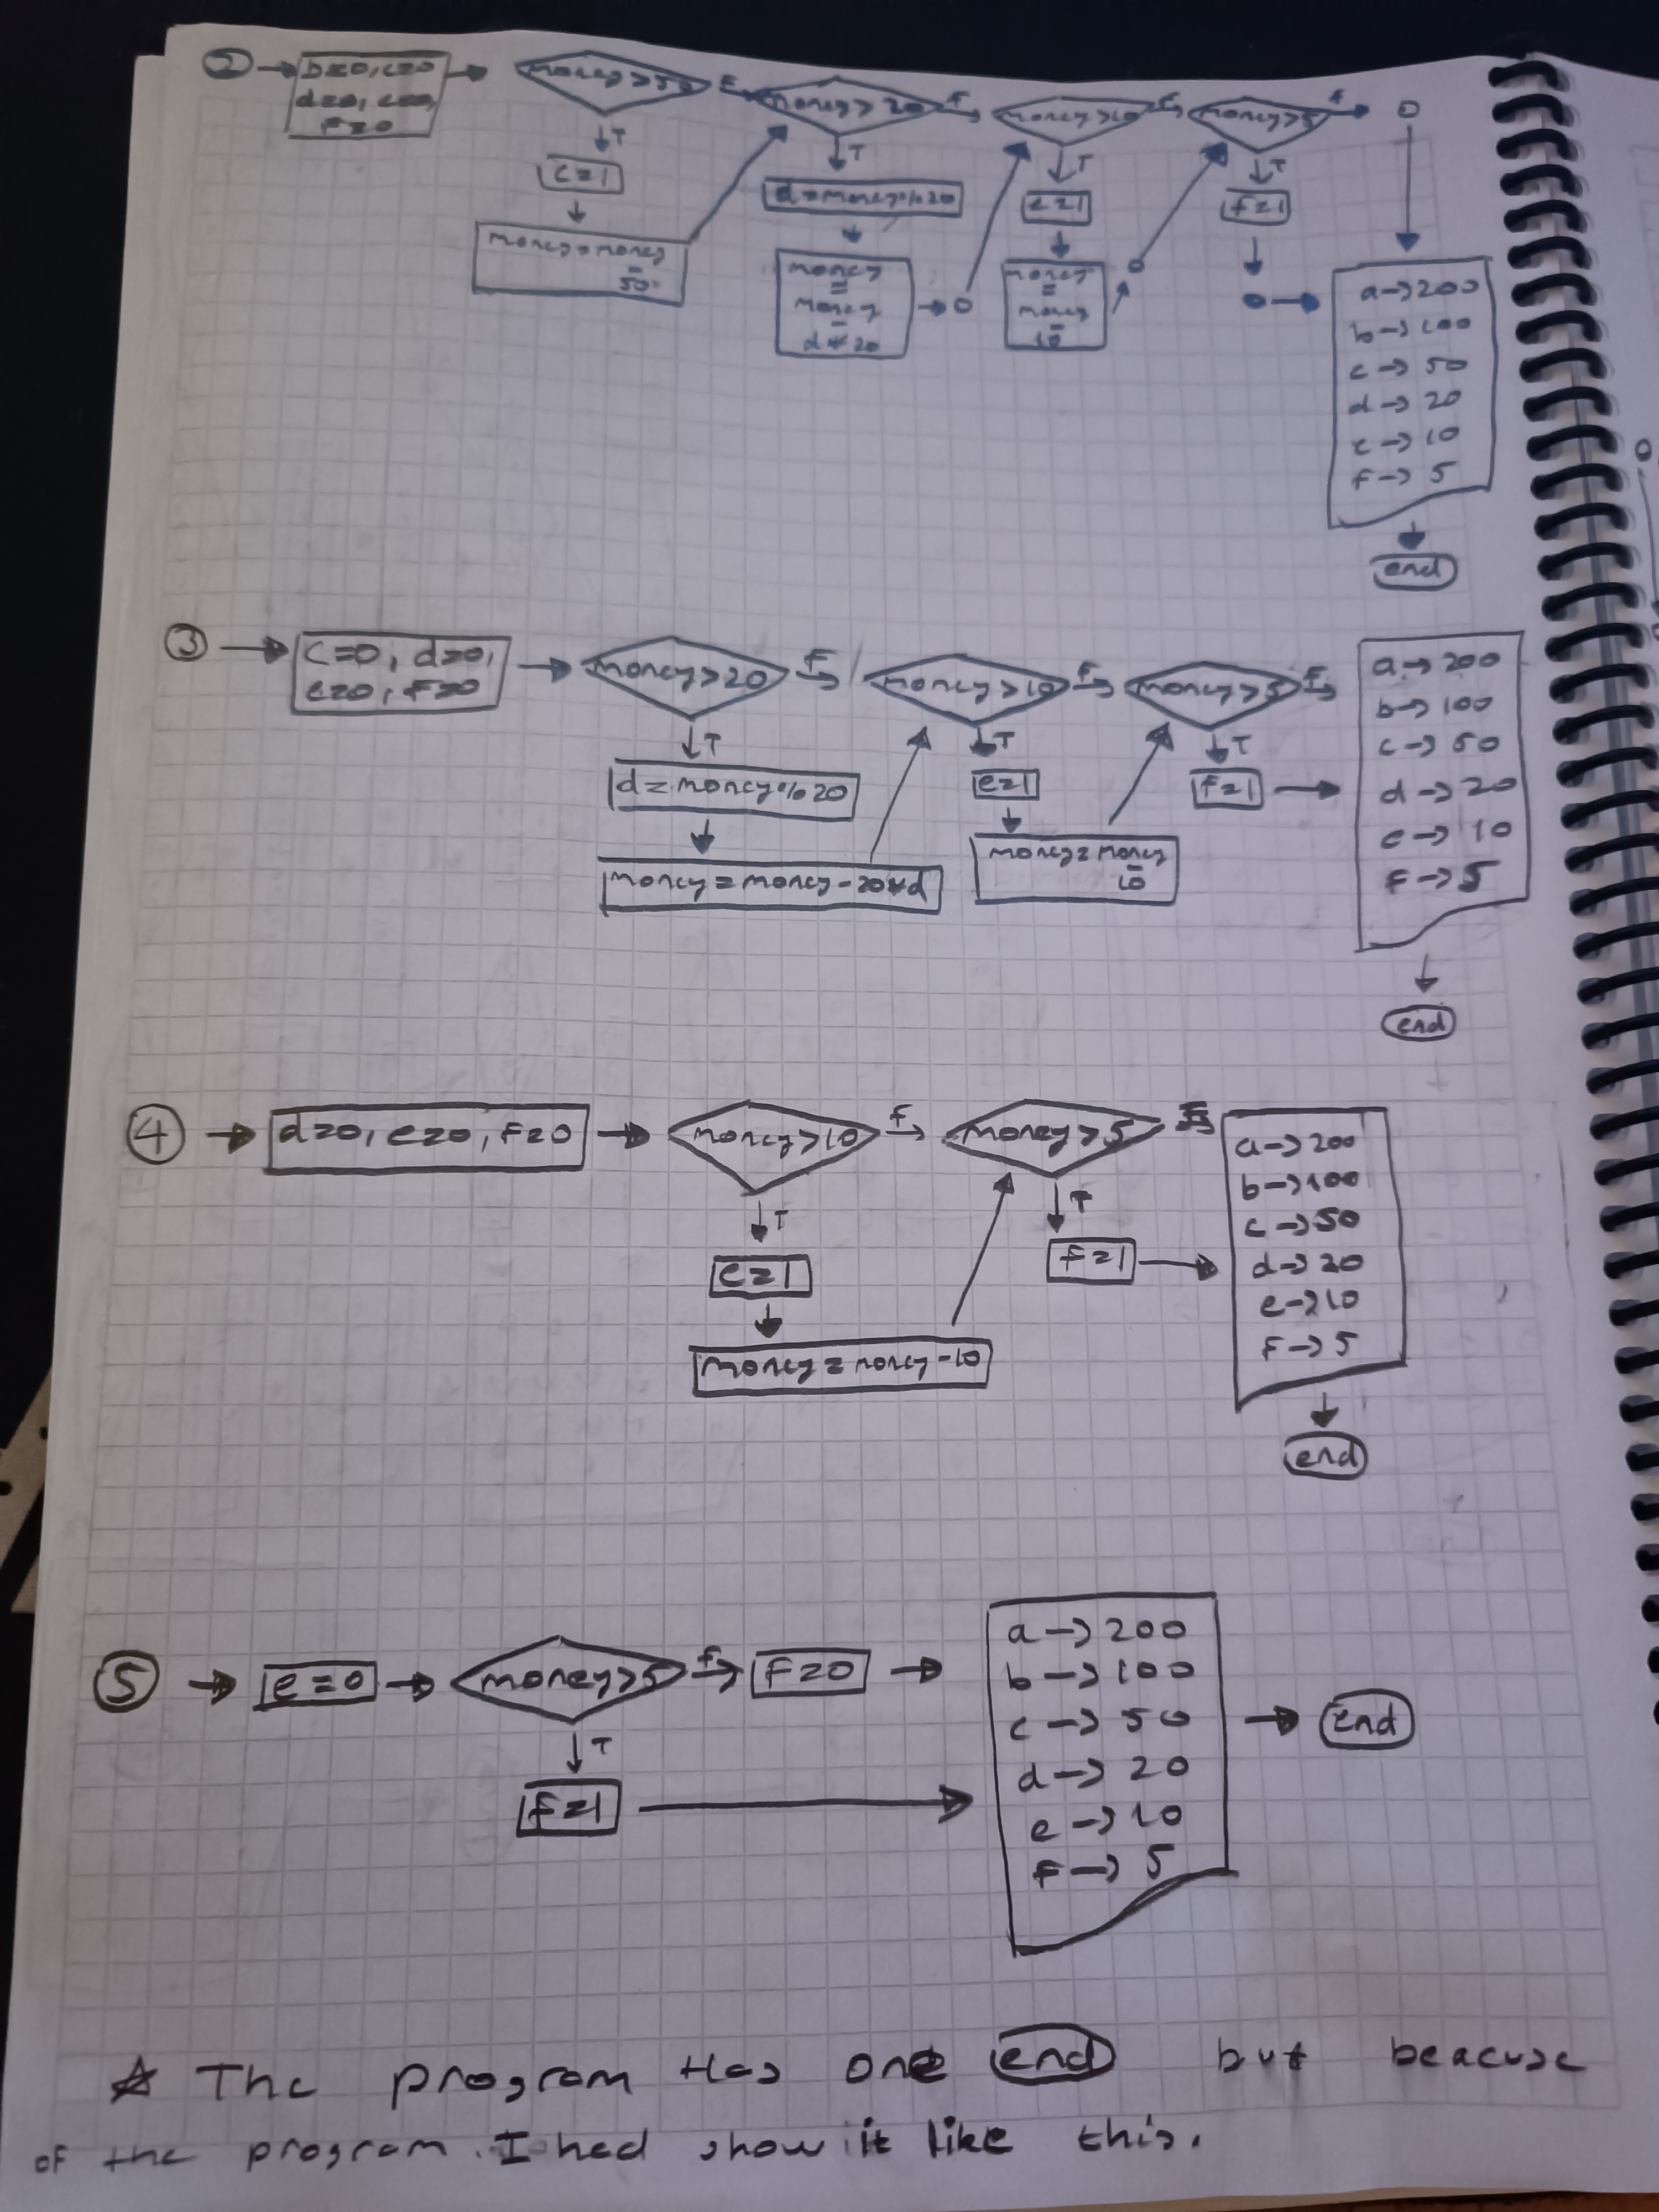 ②
b=0, c=0
d=0, e=0,
F=0
money>50
F
money>20
F
money>10
F
money>5
F
T
T
T
T
c=1
d=money%20
e=1
f=1
money=money
-
50
money
=
money
-
d*20
money
=
money
-
10
a->200
b->100
c->50
d->20
e->10
F->5
end
③
C=0, d=0,
e=0, F=0
money>20
F
money>10
F
money>5
F
T
T
T
d=money%20
e=1
f=1
money=money-20*d
money=money
-
10
a->200
b->100
c->50
d->20
e->10
F->5
end
④
d=0, e=0, F=0
money>10
f
money>5
F
T
T
e=1
F=1
money=money-10
a->200
b->100
c->50
d->20
e->10
F->5
end
⑤
e=0
money>5
f
F=0
T
F=1
a->200
b->100
c->50
d->20
e->10
F->5
end
☆ The program Has one end but beacuse
of the program. I had show it like this.